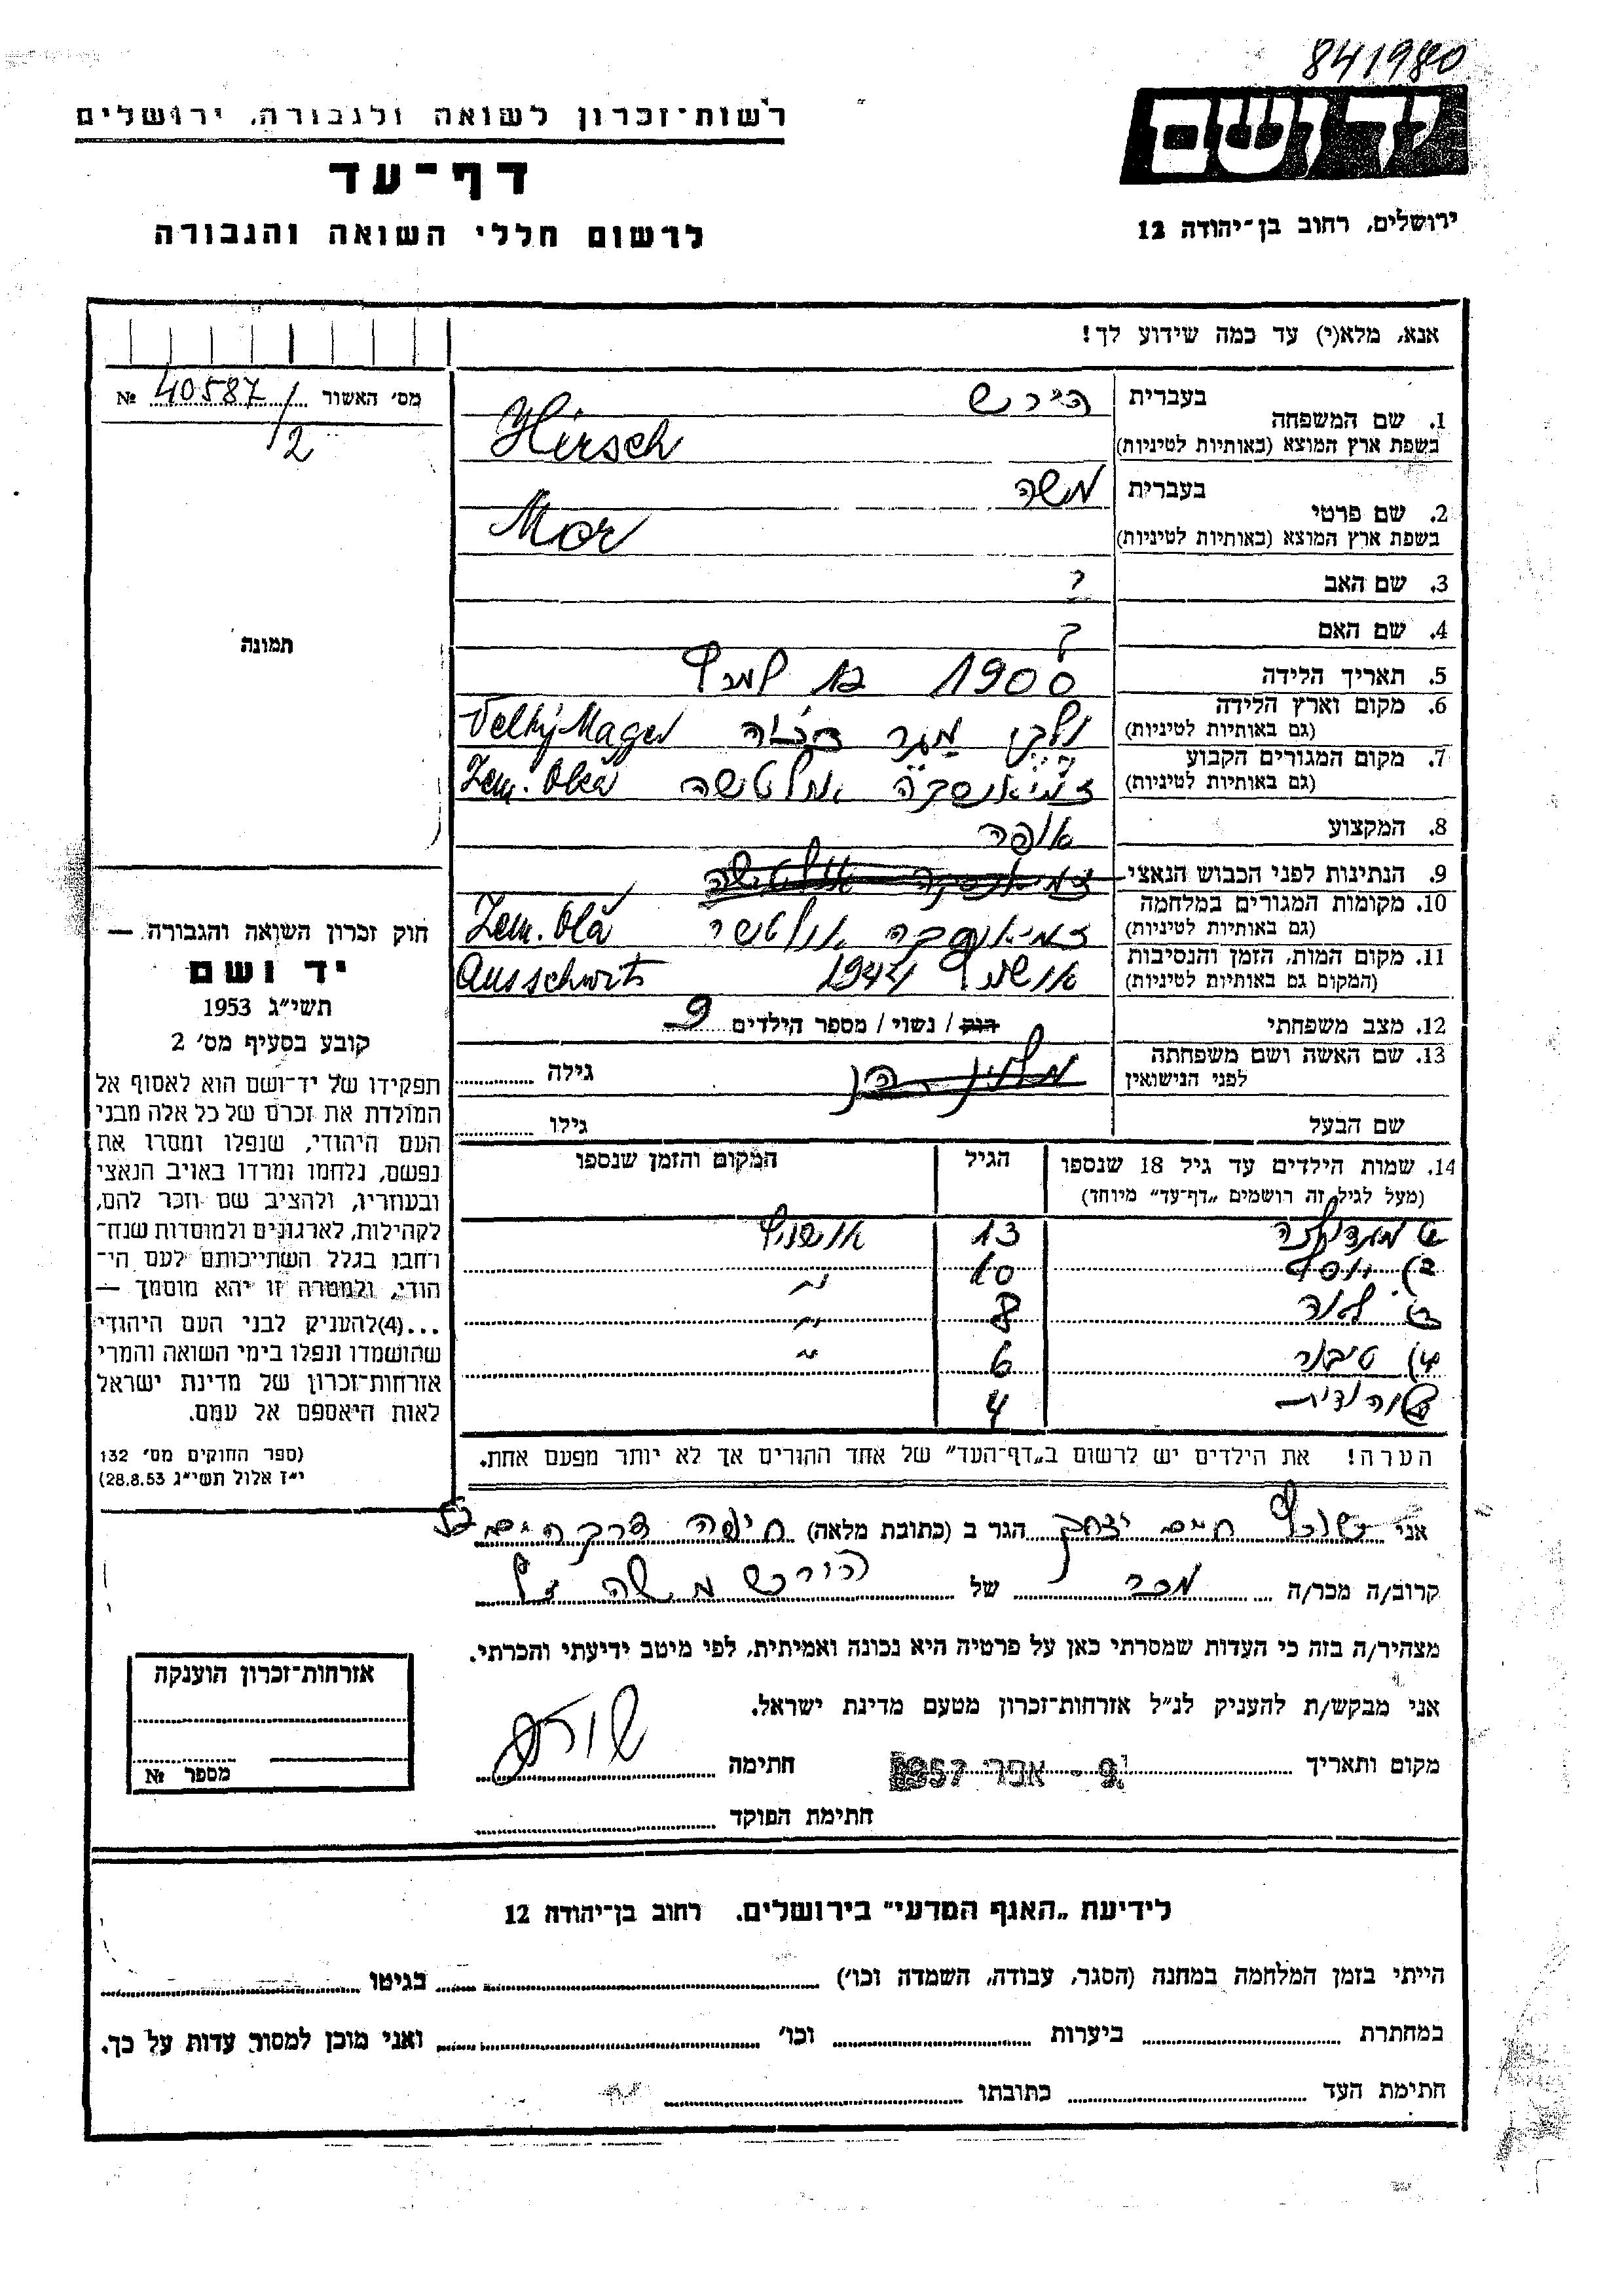 841980
יד ושם
ירושלים, רחוב בן־יהודה 12
רשות־זכרון לשואה ולגבורה, ירושלים
דף־עד
לרשום חללי השואה והגבורה
אנא, מלא(י) עד כמה שידוע לך!
מס׳ האשור 40587/2 №
בעברית הירש
1. שם המשפחה
בשפת ארץ המוצא (באותיות לטיניות) Hirsch
בעברית משה
2. שם פרטי
בשפת ארץ המוצא (באותיות לטיניות) Mor
3. שם האב ?
4. שם האם ?
תמונה
5. תאריך הלידה 1900
6. מקום וארץ הלידה
(גם באותיות לטיניות) Velký Mager
7. מקום המגורים הקבוע
(גם באותיות לטיניות) Zem. Olča
8. המקצוע אופה
9. הנתינות לפני הכבוש הנאצי
10. מקומות המגורים במלחמה
(גם באותיות לטיניות) Zem. Olča
11. מקום המות, הזמן והנסיבות
(המקום גם באותיות לטיניות) אושויץ 1944 Ausschwitz
12. מצב משפחתי רווק / נשוי / מספר הילדים 9
13. שם האשה ושם משפחתה
לפני הנישואין
גילה
שם הבעל גילו
14. שמות הילדים עד גיל 18 שנספו
(מעל לגיל זה רושמים „דף־עד״ מיוחד)
הגיל
המקום והזמן שנספו
13 אושויץ
ב) יוסף 10 ״
8 ״
טיבור 6 ״
יהודית 4
הערה! את הילדים יש לרשום ב„דף־העד״ של אחד ההורים אך לא יותר מפעם אחת.
חוק זכרון השואה והגבורה —
יד ושם
תשי״ג 1953
קובע בסעיף מס׳ 2
תפקידו של יד־ושם הוא לאסוף אל
המולדת את זכרם של כל אלה מבני
העם היהודי, שנפלו ומסרו את
נפשם, נלחמו ומרדו באויב הנאצי
ובעוזריו, ולהציב שם וזכר להם,
לקהילות, לארגונים ולמוסדות שנח־
רבו בגלל השתייכותם לעם הי־
הודי, ולמטרה זו יהא מוסמך —
...(4)להעניק לבני העם היהודי
שהושמדו ונפלו בימי השואה והמרי
אזרחות־זכרון של מדינת ישראל
לאות היאספם אל עמם.
(ספר החוקים מס׳ 132
י״ז אלול תשי״ג 28.8.53)
אני חיים יצחק הגר ב (כתובת מלאה) חיפה דרך הים
קרוב/ה מכר/ה מכר של הירש משה ז״ל
מצהיר/ה בזה כי העדות שמסרתי כאן על פרטיה היא נכונה ואמיתית, לפי מיטב ידיעתי והכרתי.
אני מבקש/ת להעניק לנ״ל אזרחות־זכרון מטעם מדינת ישראל.
מקום ותאריך 9 - אפר 1957 חתימה
חתימת הפוקד
אזרחות־זכרון הוענקה
מספר №
לידיעת „האגף המדעי״ בירושלים, רחוב בן־יהודה 12
הייתי בזמן המלחמה במחנה (הסגר, עבודה, השמדה וכו׳) בגיטו
במחתרת ביערות וכו׳ ואני מוכן למסור עדות על כך.
חתימת העד כתובתו